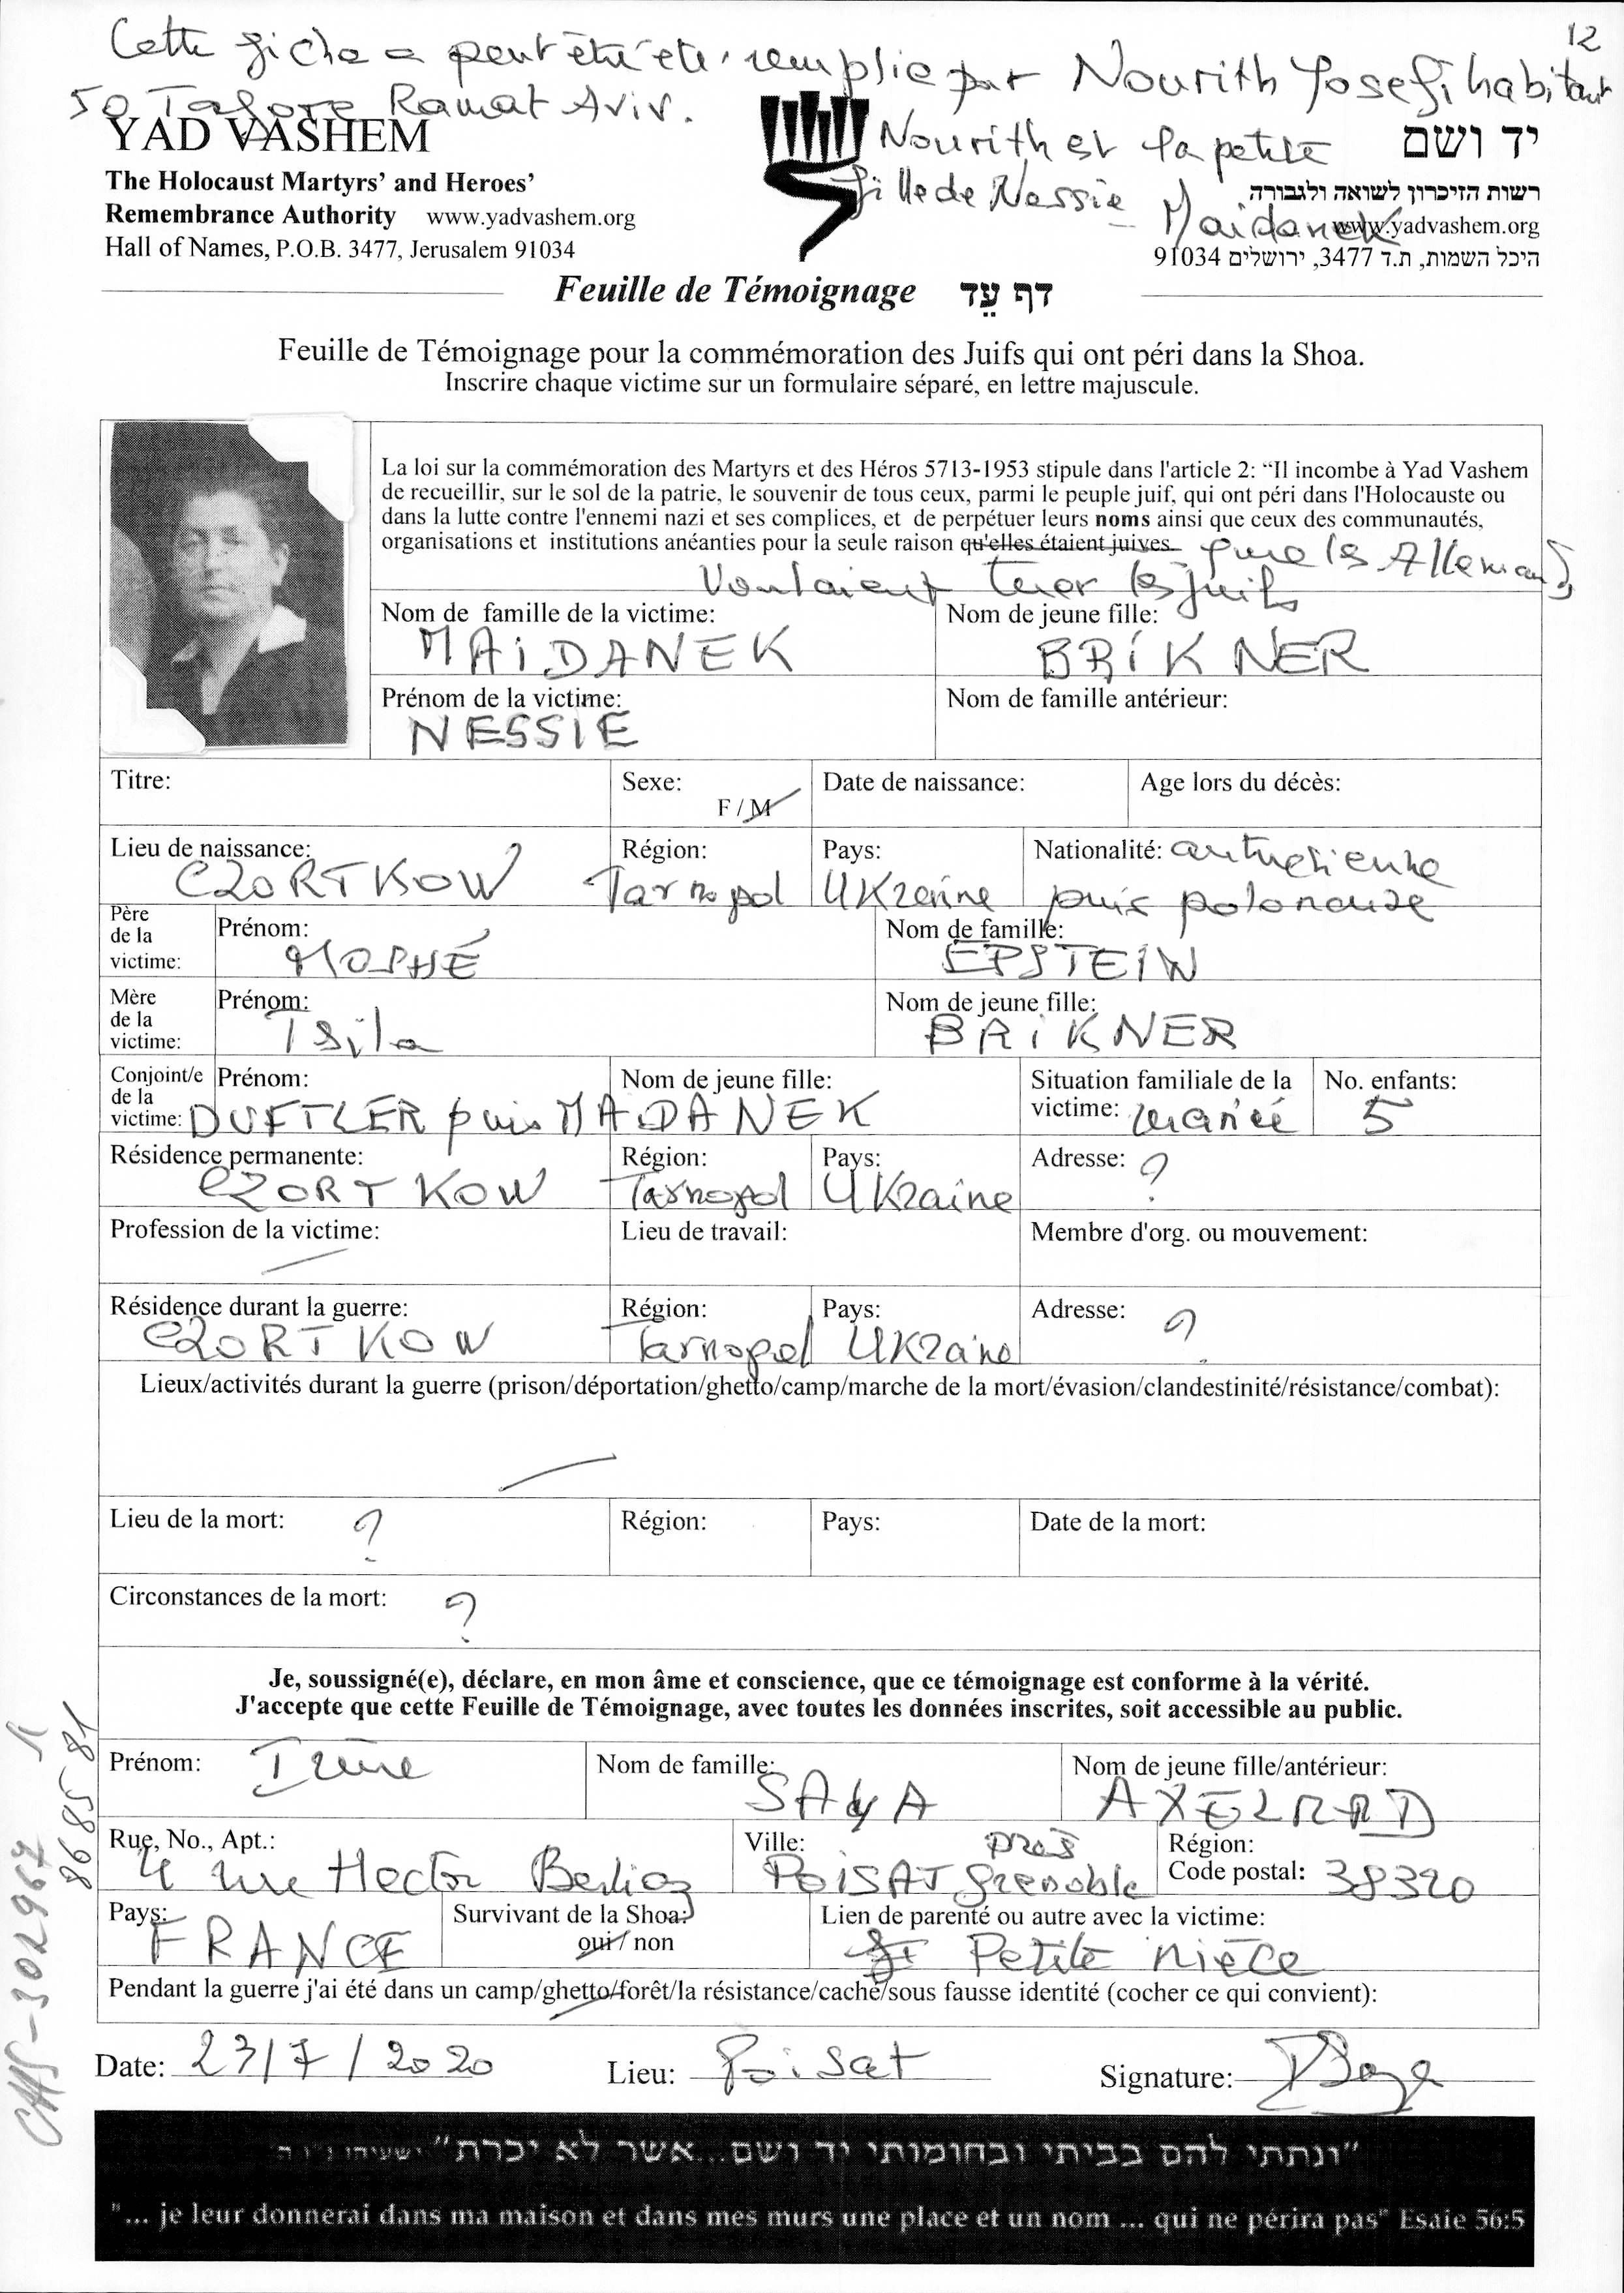 12
Cette fiche a peut être été remplie par Nourith Josefi habitant
50 Tagore Ramat Aviv.
Nourith est la petite
fille de Nessie Maidanek
YAD VASHEM
The Holocaust Martyrs' and Heroes'
Remembrance Authority www.yadvashem.org
Hall of Names, P.O.B. 3477, Jerusalem 91034
יד ושם
רשות הזיכרון לשואה ולגבורה
www.yadvashem.org
היכל השמות, ת.ד 3477, ירושלים 91034
Feuille de Témoignage דף עֵד
Feuille de Témoignage pour la commémoration des Juifs qui ont péri dans la Shoa.
Inscrire chaque victime sur un formulaire séparé, en lettre majuscule.
La loi sur la commémoration des Martyrs et des Héros 5713-1953 stipule dans l'article 2: “Il incombe à Yad Vashem
de recueillir, sur le sol de la patrie, le souvenir de tous ceux, parmi le peuple juif, qui ont péri dans l'Holocauste ou
dans la lutte contre l'ennemi nazi et ses complices, et de perpétuer leurs noms ainsi que ceux des communautés,
organisations et institutions anéanties pour la seule raison qu'elles étaient juives que les Allemands
voulaient tuer les juifs
Nom de famille de la victime: MAIDANEK Nom de jeune fille: BRIKNER
Prénom de la victime: NESSIE Nom de famille antérieur:
Titre: Sexe: F / M Date de naissance: Age lors du décès:
Lieu de naissance: CZORTKOW Région: Tarnopol Pays: UKraine Nationalité: autrichienne
puis polonaise
Père de la victime: Prénom: MOSHÉ Nom de famille: EPSTEIN
Mère de la victime: Prénom: Tsila Nom de jeune fille: BRIKNER
Conjoint/e de la victime: Prénom: DUFTLER puis MAIDANEK Nom de jeune fille: Situation familiale de la victime: mariée No. enfants: 5
Résidence permanente: CZORTKOW Région: Tarnopol Pays: UKraine Adresse: ?
Profession de la victime: Lieu de travail: Membre d'org. ou mouvement:
Résidence durant la guerre: CZORTKOW Région: Tarnopol Pays: UKraine Adresse: ?
Lieux/activités durant la guerre (prison/déportation/ghetto/camp/marche de la mort/évasion/clandestinité/résistance/combat):
Lieu de la mort: ? Région: Pays: Date de la mort:
Circonstances de la mort: ?
Je, soussigné(e), déclare, en mon âme et conscience, que ce témoignage est conforme à la vérité.
J'accepte que cette Feuille de Témoignage, avec toutes les données inscrites, soit accessible au public.
Prénom: Irène Nom de famille: SAYA Nom de jeune fille/antérieur: AXELRAD
Rue, No., Apt.: 4 rue Hector Berlioz Ville: POISAT près Grenoble Région: Code postal: 38320
Pays: FRANCE Survivant de la Shoa: oui / non Lien de parenté ou autre avec la victime: Petite nièce
Pendant la guerre j'ai été dans un camp/ghetto/forêt/la résistance/caché/sous fausse identité (cocher ce qui convient):
Date: 23/7/2020 Lieu: Poisat Signature: ISaya
"ונתתי להם בביתי ובחומותי יד ושם...אשר לא יכרת" ישעיהו נ"ו ה'
"... je leur donnerai dans ma maison et dans mes murs une place et un nom ... qui ne périra pas" Esaie 56:5
302967
8685581